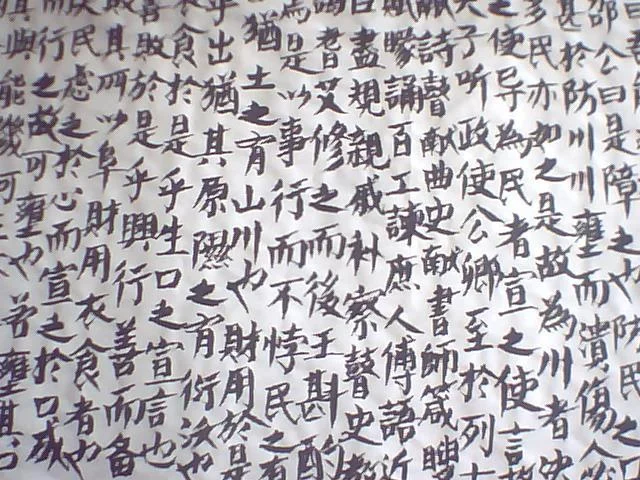 邵公曰是障之也防民之口
甚於防川川壅而潰傷人必
多民亦如之是故為川者決
之使导為民者宣之使言故
天子听政使公卿至於列士
獻詩瞽献曲史献書師箴瞍
賦矇誦百工諫庶人傅語近
臣盡規親戚补察瞽史教
誨耆艾修之而後王斟酌
焉是以事行而不悖民之有
猶土之有山川也財用於是
乎出猶其原隰之有衍沃也
衣食於是乎生口之宣言也
善敗於是乎興行善而备
敗其所以阜財用衣食者也
夫民慮之於心而宣之於口成
而行之故可壅也若壅其口
其與能幾何